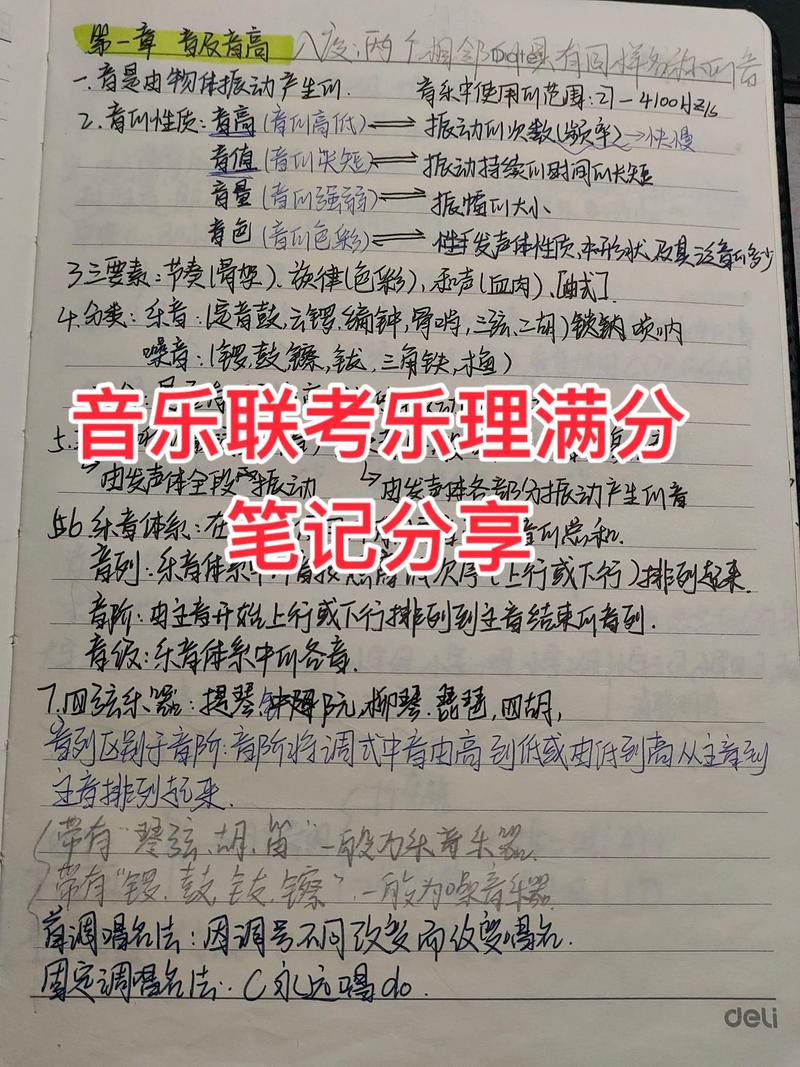 第一章 音及音高 八度:两个相邻的具有同样名称的音
Date
一.音是由物体振动产生的. 音乐中使用的范围:27-4100Hz/s
2.音的性质:音高(音的高低)⟺振动的次数(频率)→快慢
音值(音的长短)⟺振动持续的时间的长短
音量(音的强弱)⟺振幅的大小
音色(音的色彩)⟺ 发声体性质,形状及其泛音的多少
3三要素:节奏(骨架).旋律(色彩),和声(血肉).[曲式].
4.分类:乐音:(定音鼓,云锣,编钟,骨哨,三弦.二胡) 唢呐
噪音:(锣,鼓,镲,钹,三角铁,木鱼)
音乐联考乐理满分
5.
↳由发声体全段 振动 ↳由发声体各部分振动产生的音
笔记分享
6.乐音体系:在 音的总和.
音列:乐音体系中. 音按 次序(上行或下行)排列起来.
音阶:由主音开始上行或下行排列到主音结束的音列.
音级:乐音体系中的各音.
7.四弦乐器:提琴 阮,柳琴.琵琶,四胡,
音列区别于音阶:音阶将调式中音由高到低或由低到高从主音到
主音排列起来.
带有“琴弦.胡.笛”一般为乐音乐器.
带有“锣.鼓.钹.镲”.一般为噪音乐器.
首调唱名法:因调号不同改变而改变唱名.
固定调唱名法:C永远唱do.
deli